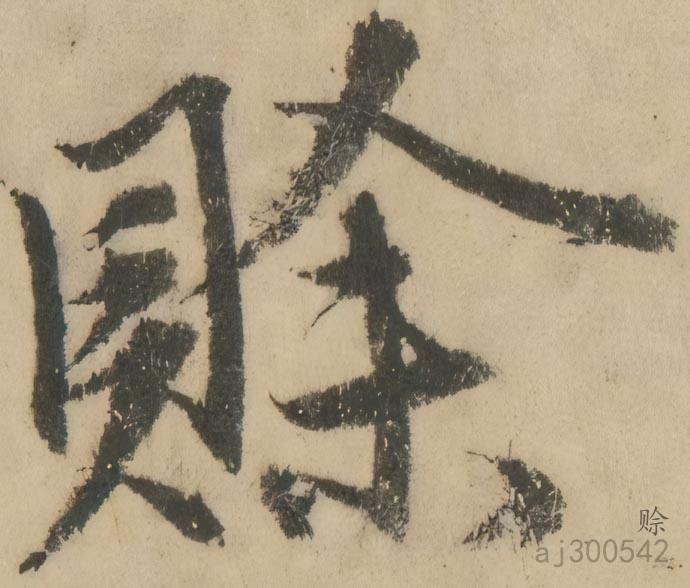 賒
赊
aj300542